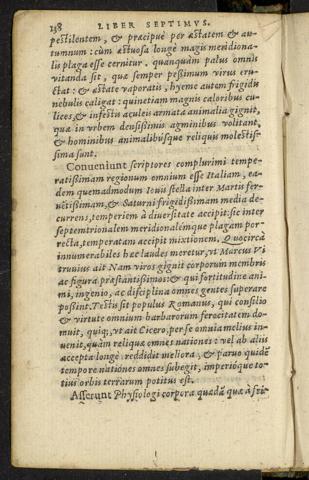 138 LIBER SEPTIMVS.
pestilentem, & præcipuè per æstatem & au-
tumnum: cùm æstuosa longè magis meridiona-
lis plaga esse cernitur. quanquàm palus omnis
vitanda sit, quæ semper pessimum virus eru-
ctat: & æstate vaporatis, hyeme autem frigidis
nebulis caligat: quinetiam magnis caloribus cu-
lices, & infestis aculeis armata animalia gignit,
quæ in vrbem densissimis agminibus volitant,
& hominibus animalibusque reliquis molestis-
sima sunt.
Conueniunt scriptores complurimi tempe-
ratissimam regionum omnium esse Italiam, ea-
dem quemadmodum Iouis stella inter Martis fer-
uētissimam, & Saturni frigidissimam media de-
currens, temperiem à diuersitate accipit: sic inter
septemtrionalem meridionalemque plagam por-
recta, temperatam accipit mixtionem. Quocircà
innumerabiles hæ laudes meretur, vt Marcus Vi
truuius ait Nam viros gignit corporum membris
ac figura præstantissimos: & qui fortitudine ani-
mi, ingenio, ac disciplina omnes gentes superare
possint. Testis sit populus Romanus, qui consilio
& virtute omnium barbarorum ferocitatem do-
muit, quiq;, vt ait Cicero, per se omnia melius in-
uenit, quàm reliquæ omnes nationes: vel ab aliis
accepta longè reddidit meliora: & paruo quidē
tempore nationes omnes subegit, imperióque to-
tius orbis terrarum potitus est.
Asserunt Physiologi corpora quædā quæ à fri-